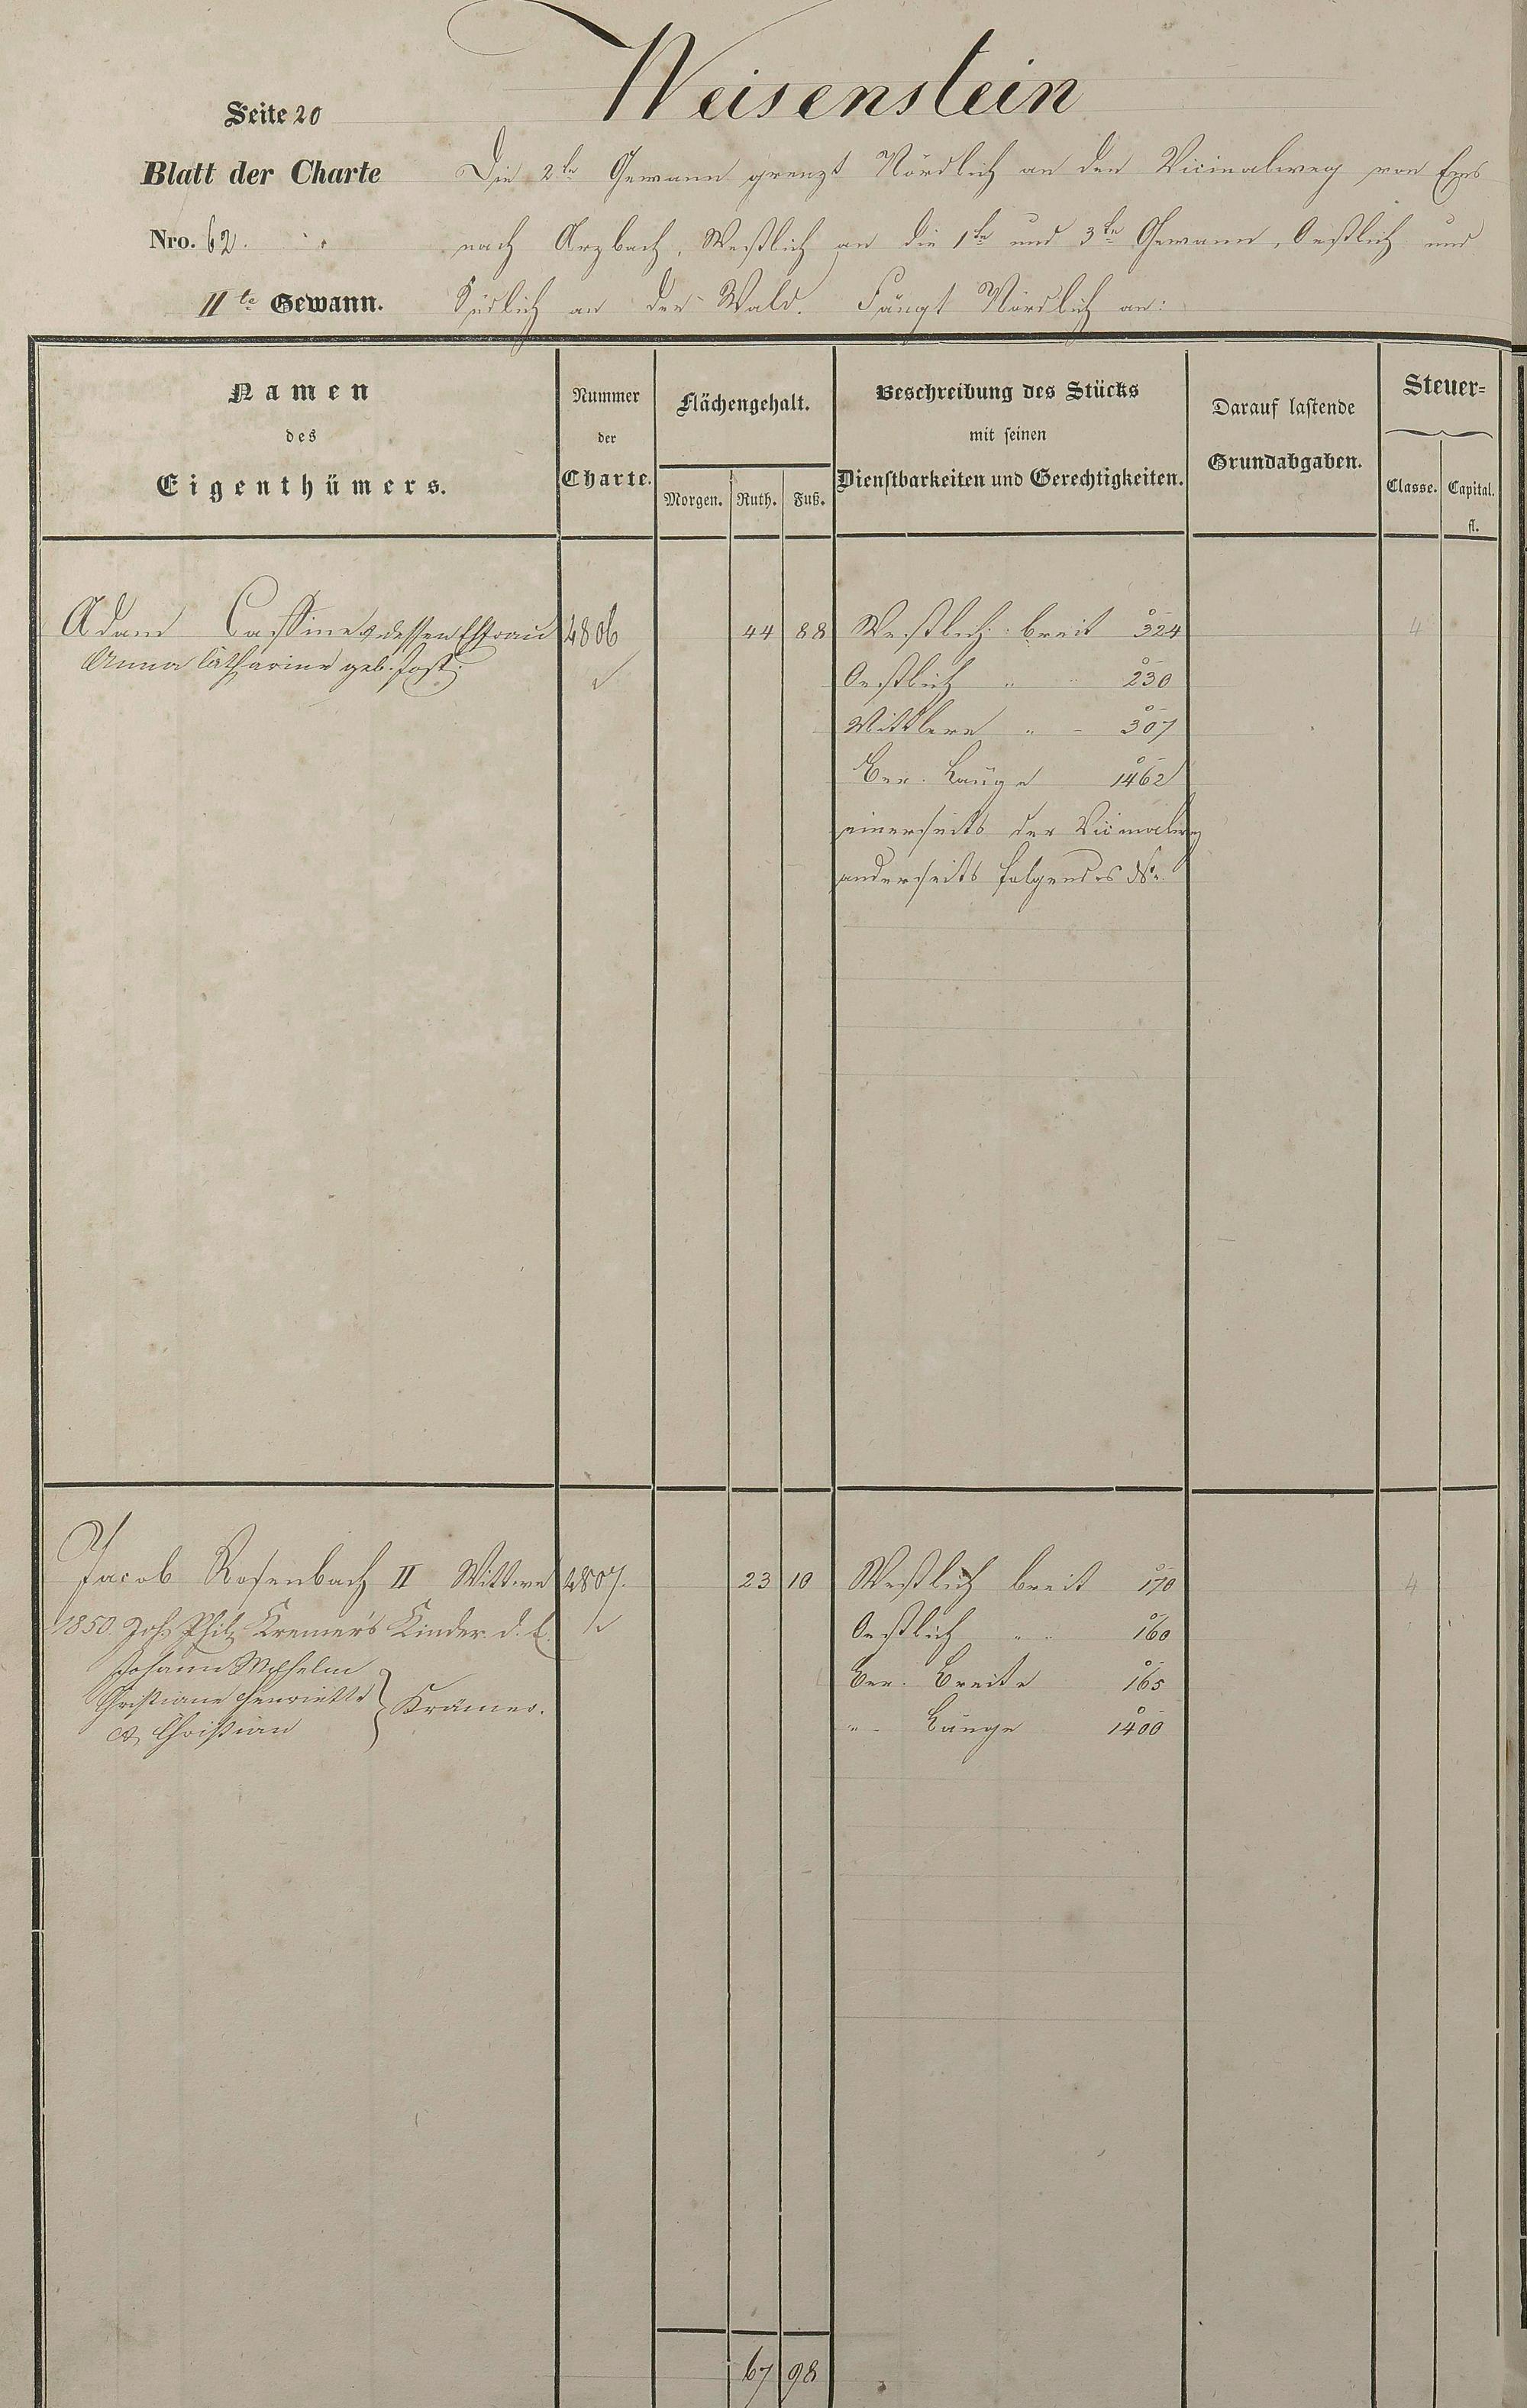 Weisenstein
Seite 20
Blatt der Charte
Nro. 62.
IIte Gewann.
Die 2te Gewann grenzt Nördlich an den Vicinalweg von Ems
nach Arzbach, Westlich an die 1te und 3te Gewann, Oestlich und
Südlich an den Wald. Fängt Nördlich an:
Namen
des
Eigenthümers.
Nummer
der
Charte.
Flächengehalt.
Morgen. Ruth. Fuß.
Beschreibung des Stücks
mit seinen
Dienstbarkeiten und Gerechtigkeiten.
Darauf lastende
Grundabgaben.
Steuer=
Classe. Capital.
fl.
Adam Cassine & dessen Ehfrau 4806 44 88 Westlich breit 324 4
Anna Catharine geb. Jost.
Oestlich " 230
Mittlere " 307
Ber. Länge 1462
einerseits der Vicinalweg
anderseits folgendes No.
Jacob Rosenbach II Wittwe 4807. 23 10 Westlich breit 170 4
1850. Joh. Phil. Kremer's Kinder d. E. Oestlich " 160
Johann Wilhelm
Christiane Henriette } Krämer. Ber. Breite 165
& Christian " Länge 1400
67 98